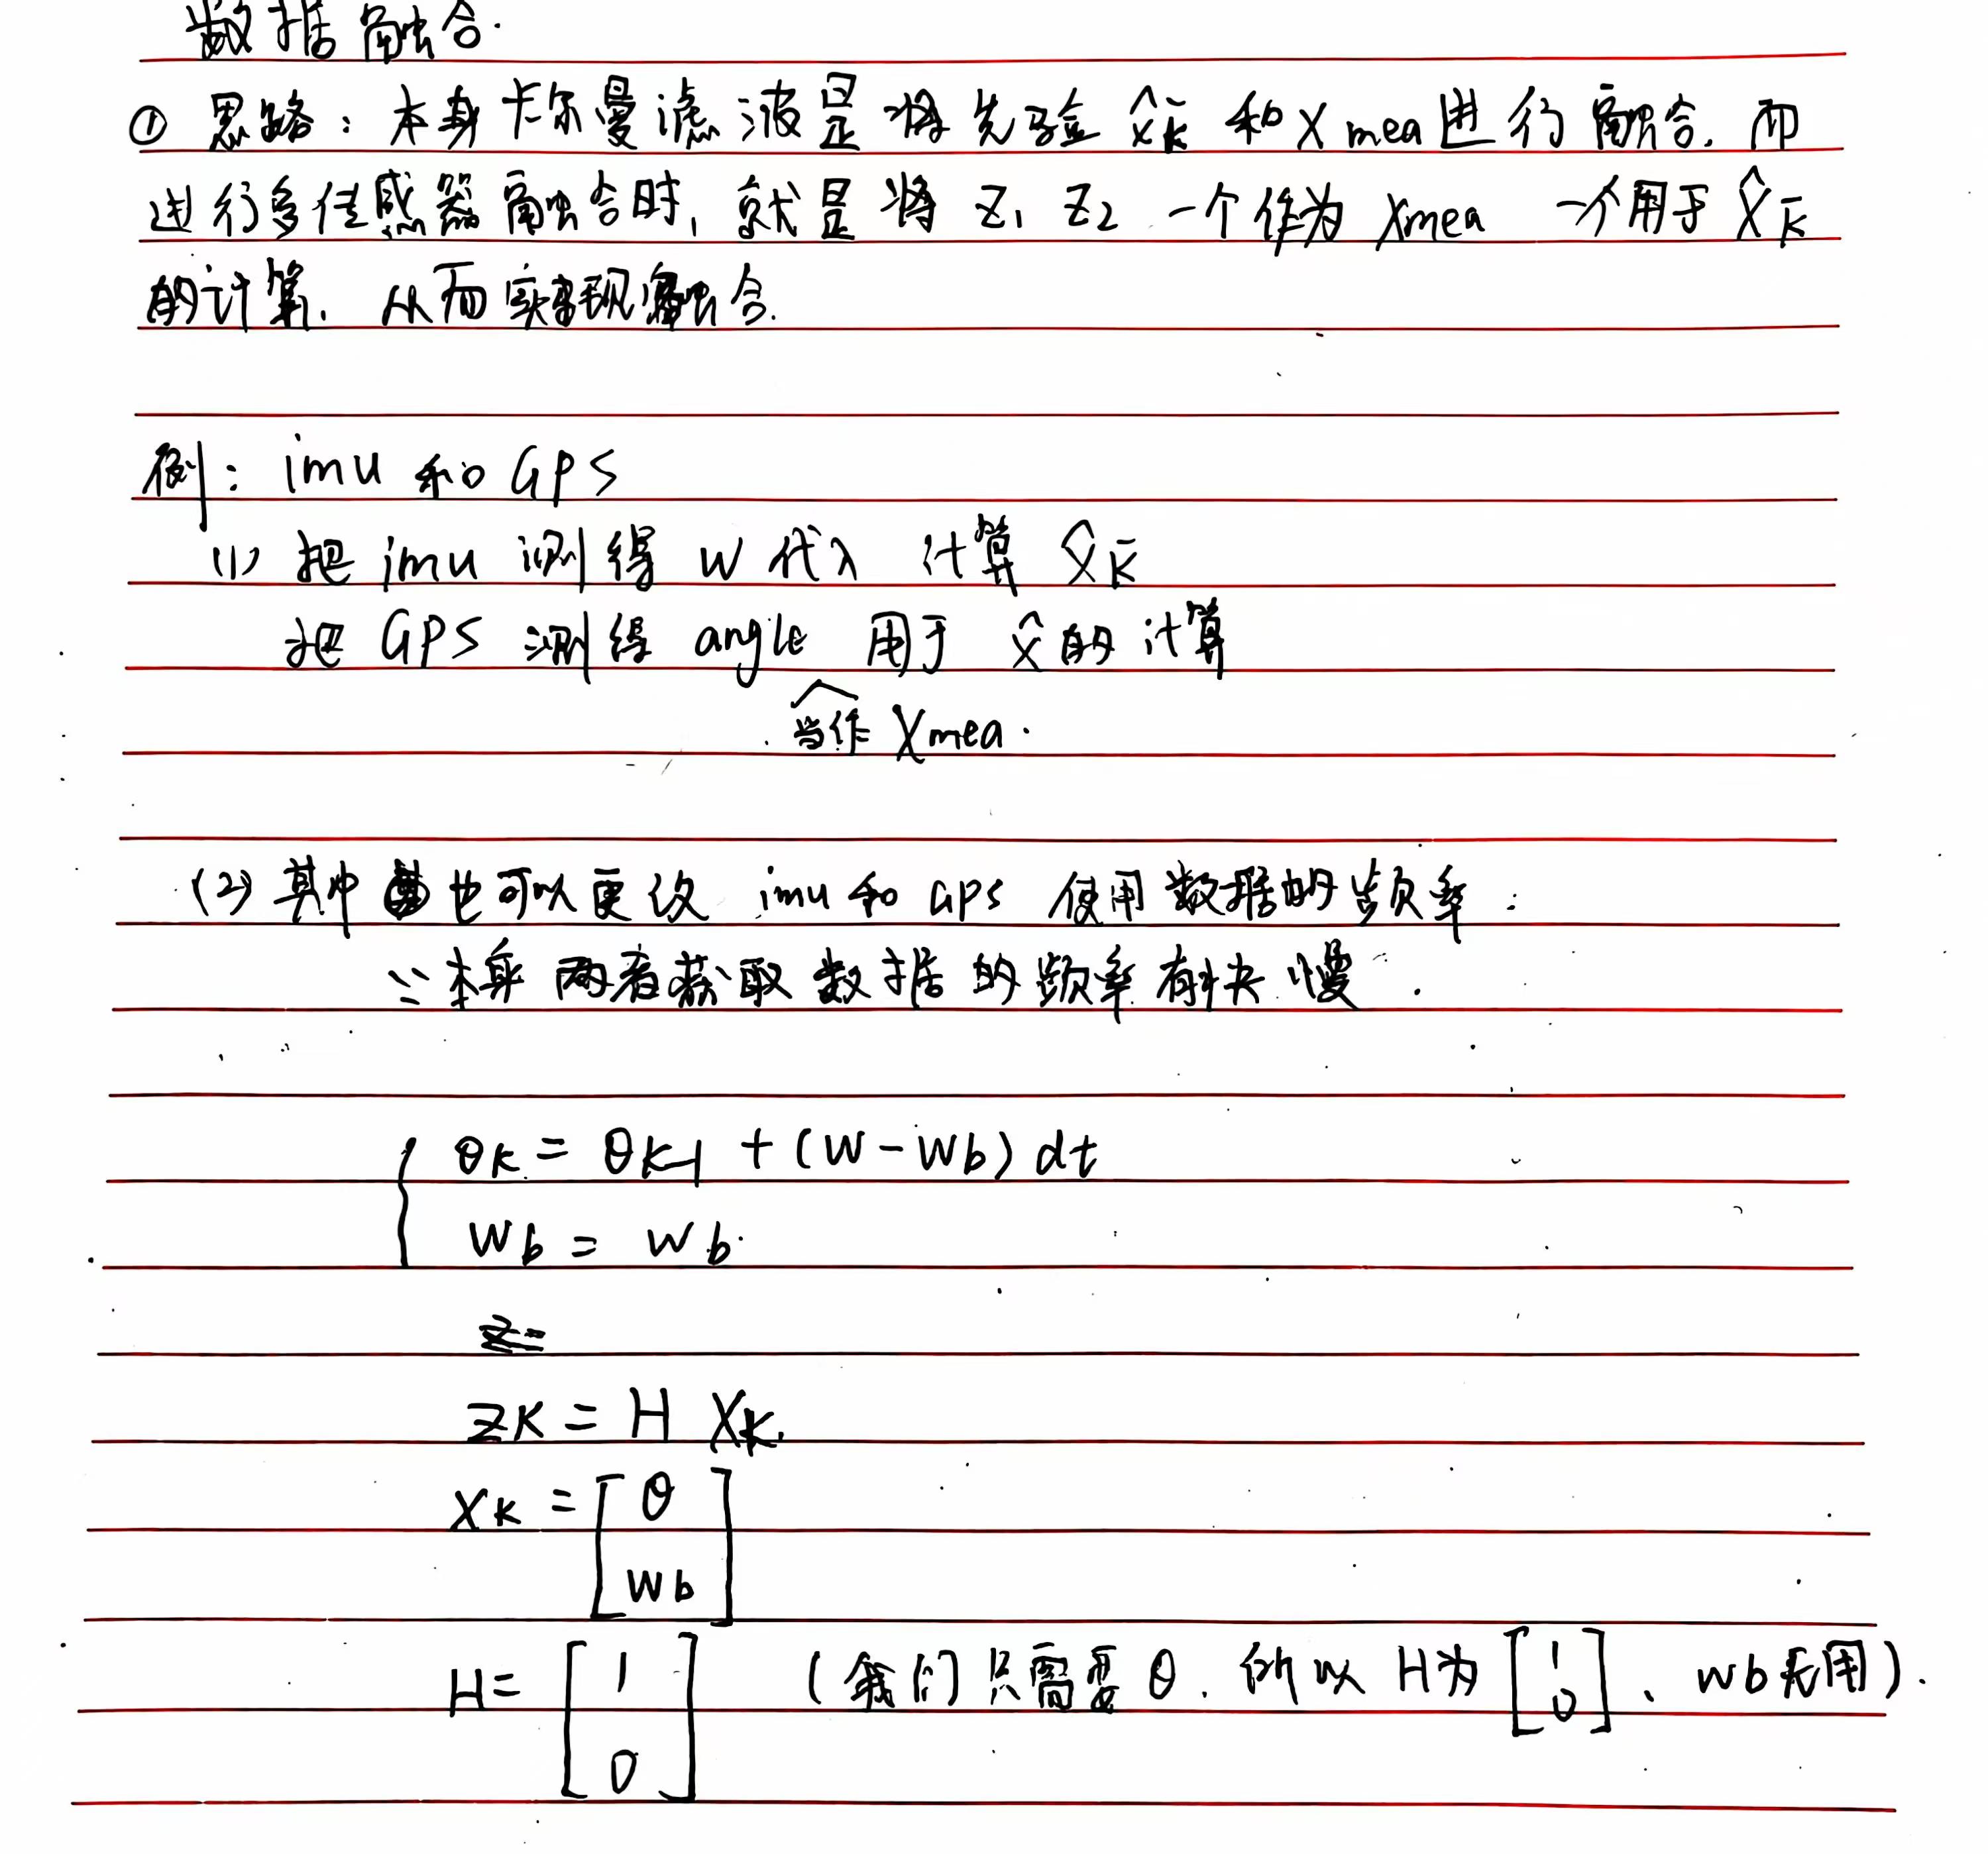 数据融合.
① 思路：本身卡尔曼滤波是将先验 x̂k⁻ 和 X mea 进行融合. 而
进行多传感器融合时, 就是将 Z1 Z2 一个作为 Xmea 一个用于 X̂k⁻
的计算. 从而实现融合.
例： imu 和 GPS
(1) 把 imu 测得 W 代入 计算 X̂k⁻
把 GPS 测得 angle 用于 x̂ 的计算
当作 Xmea.
(2) 其中 也可以更改 imu 和 GPS 使用数据的频率：
∵ 本身两者获取数据的频率有快慢.
θk = θk-1 + (W - Wb) dt
Wb = Wb.
ZK = H Xk.
XK = [ θ
Wb ]
H = [ 1 (我们只需要 θ. 所以 H 为 [ 1 0 ]、wb无用).
0 ]